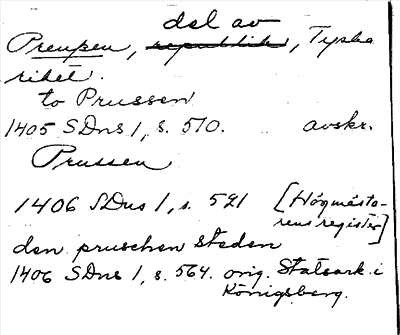 del av
Preuszen, republik, Tyska
riket.
to Prussen
1405 SDns 1, s. 570. avskr.
Prussen
1406 SDns 1, s. 521 [Högmästa-
rens register]
den pruschen steden
1406 SDns 1, s. 564. orig. Statsark. i
Königsberg.